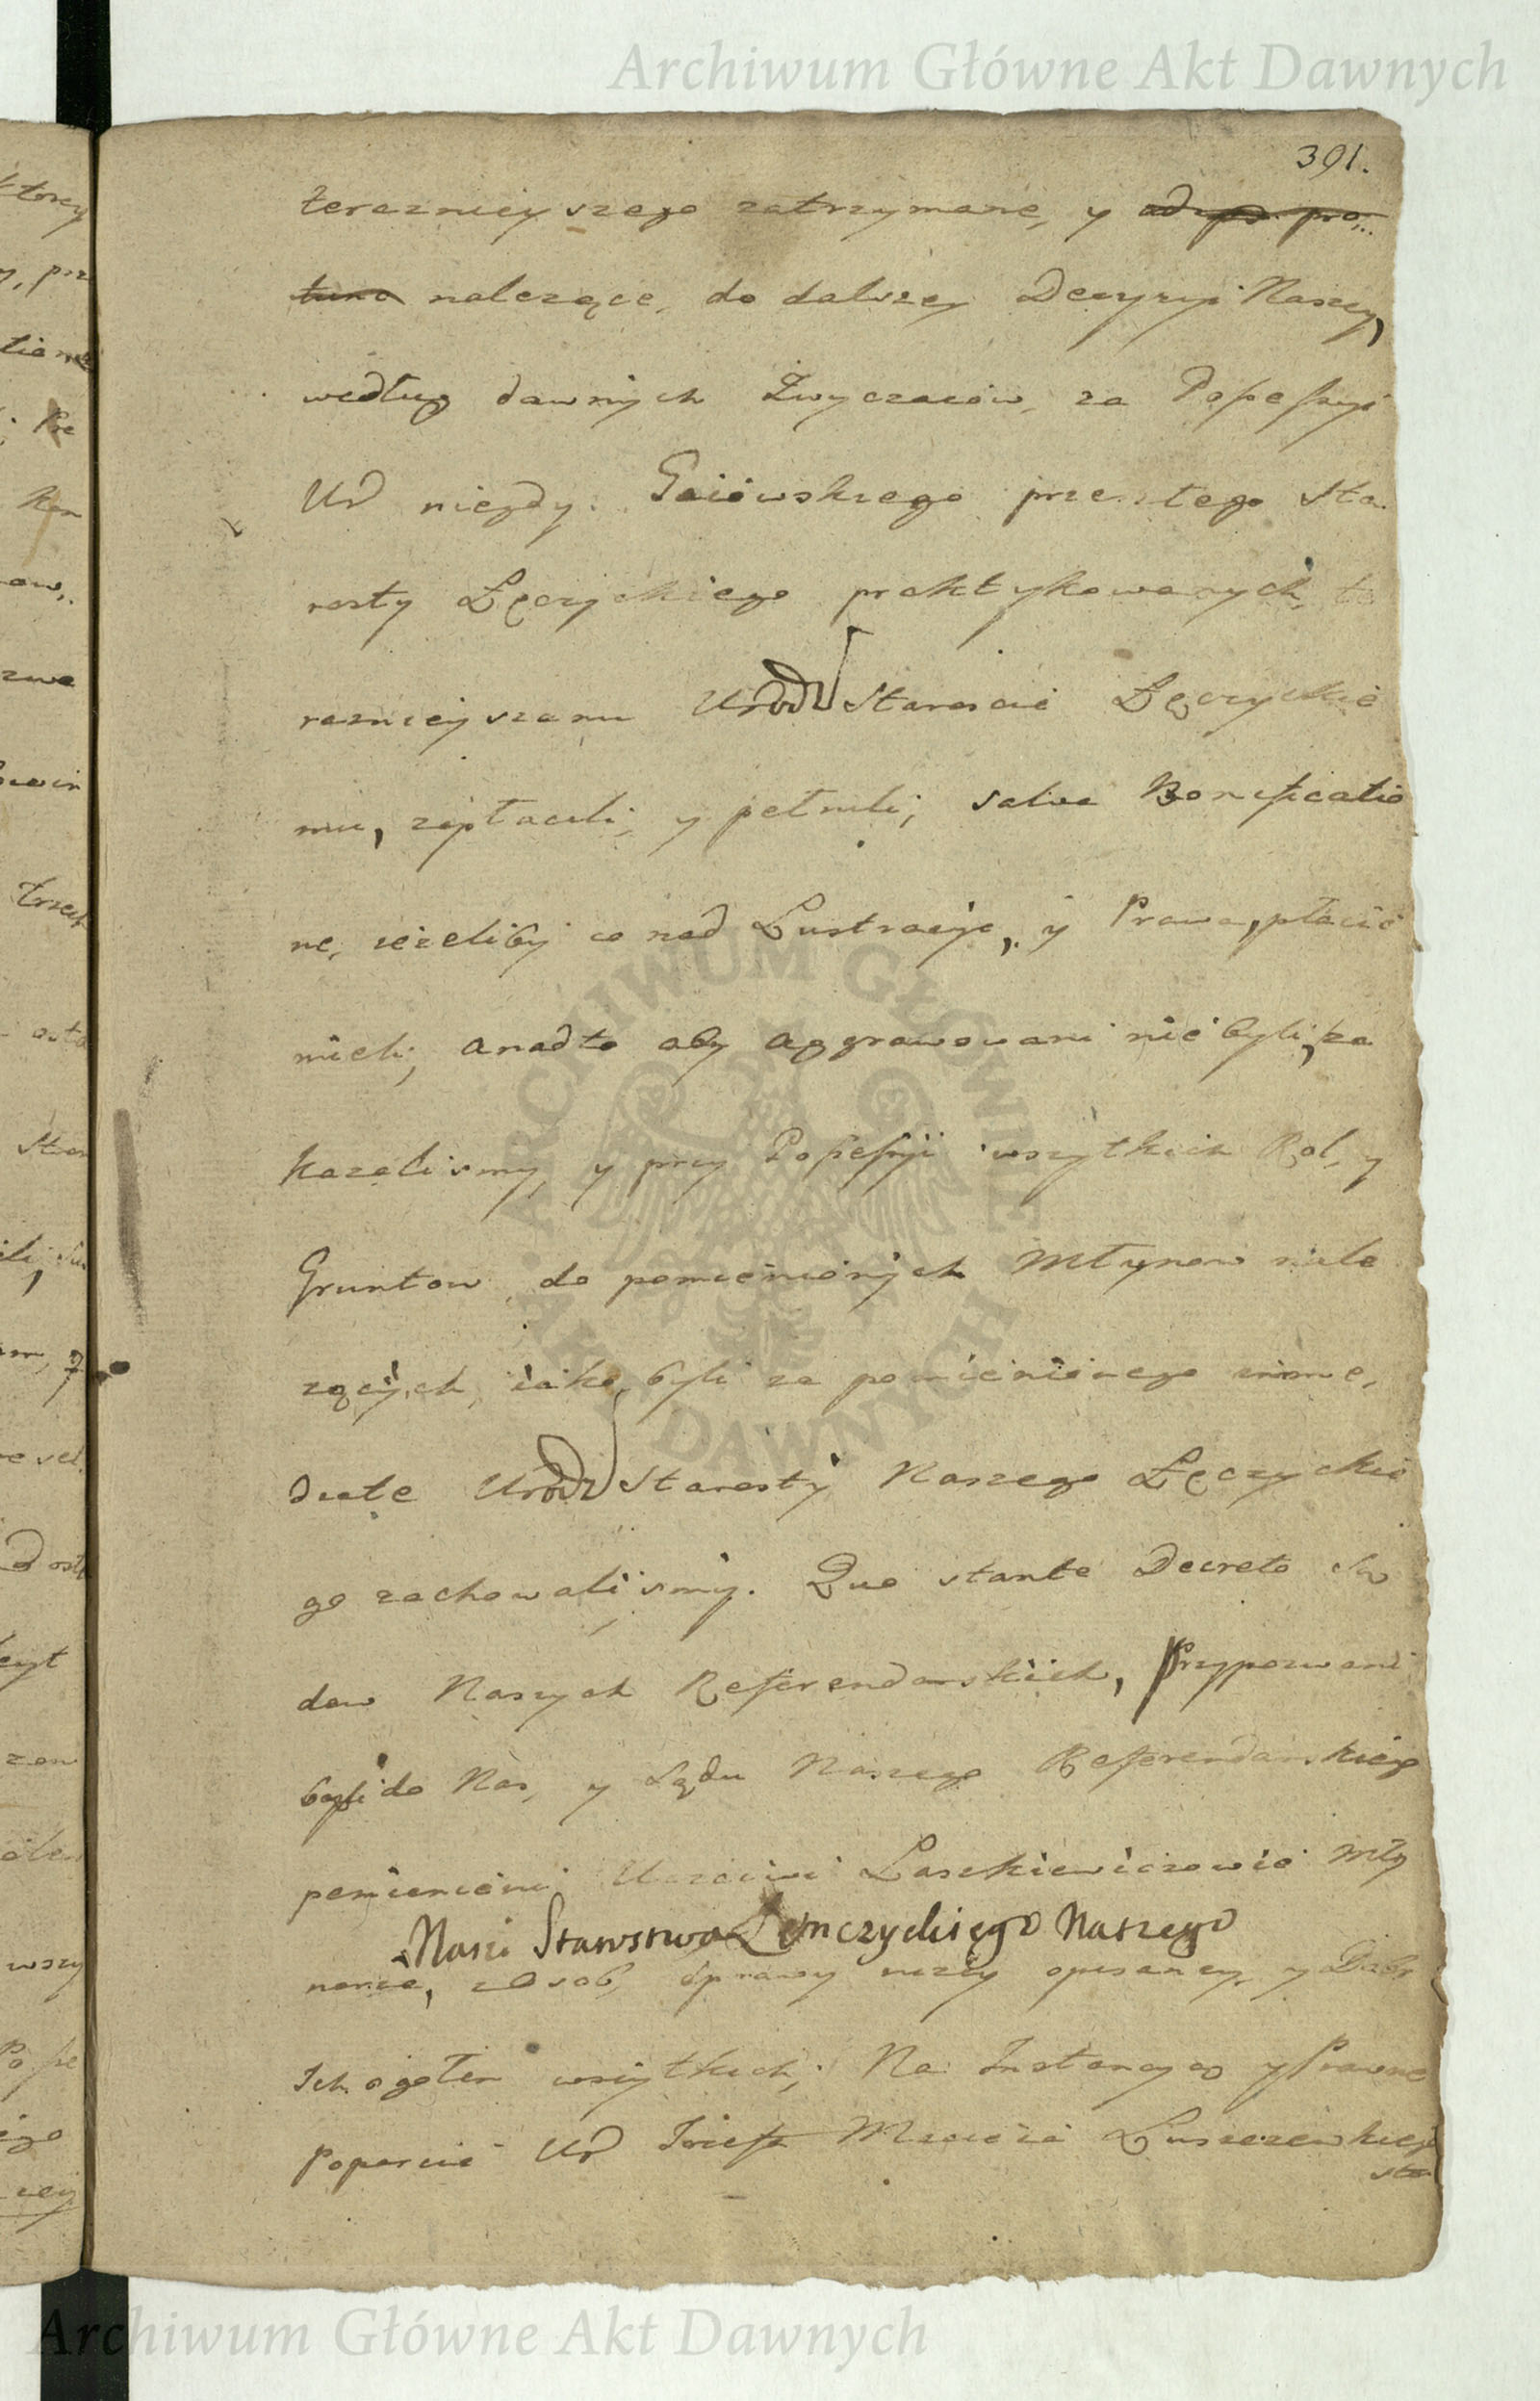 Archiwum Główne Akt Dawnych
391.
terazniejszego zatrzymane, y
należące, do dalszey Decyzyi Naszey,
według dawnych Zwyczaiów, za Possessyi
Ur niegdy. Gaiewskiego przeszłego Sta
rosty Łęczyckiego praktykowanych, te
raznieyszemu Urodz Staroscie Łęczyckie
mu, zapłacili, y pełnili; salva Bonificatio
ne, ieżeliby co nad Lustracyę, y Prawa, płacić
mieli, a nadto aby aggrawowani nie byli, za
kazalismy, y przy Possessyi wszytkich Rol, y
Gruntow, do pomienionych Młynow nale
zących, iako byli za pomienionego
Urodz Starosty Naszego Łęczyckie
go zachowalismy. Quo stante Decreto Są
dow Naszych Referendarskich, Przypozwani
byli do Nas, y Sądu Naszego Referendarskiego
pomienieni Uczciwi Laszkiewiczowie Mły
Nasi Starostwa Łenczyckiego Naszego
narze, z Osob, sprawy niżey opisaney, y Dobr
Ich ogołem wszytkich; Na Instancyą y Prawne
Poparcie Ur Józefa Macieia Łuszczewskieg
sta
ARCHIWUM GŁÓWNE AKT DAWNYCH
Archiwum Główne Akt Dawnych